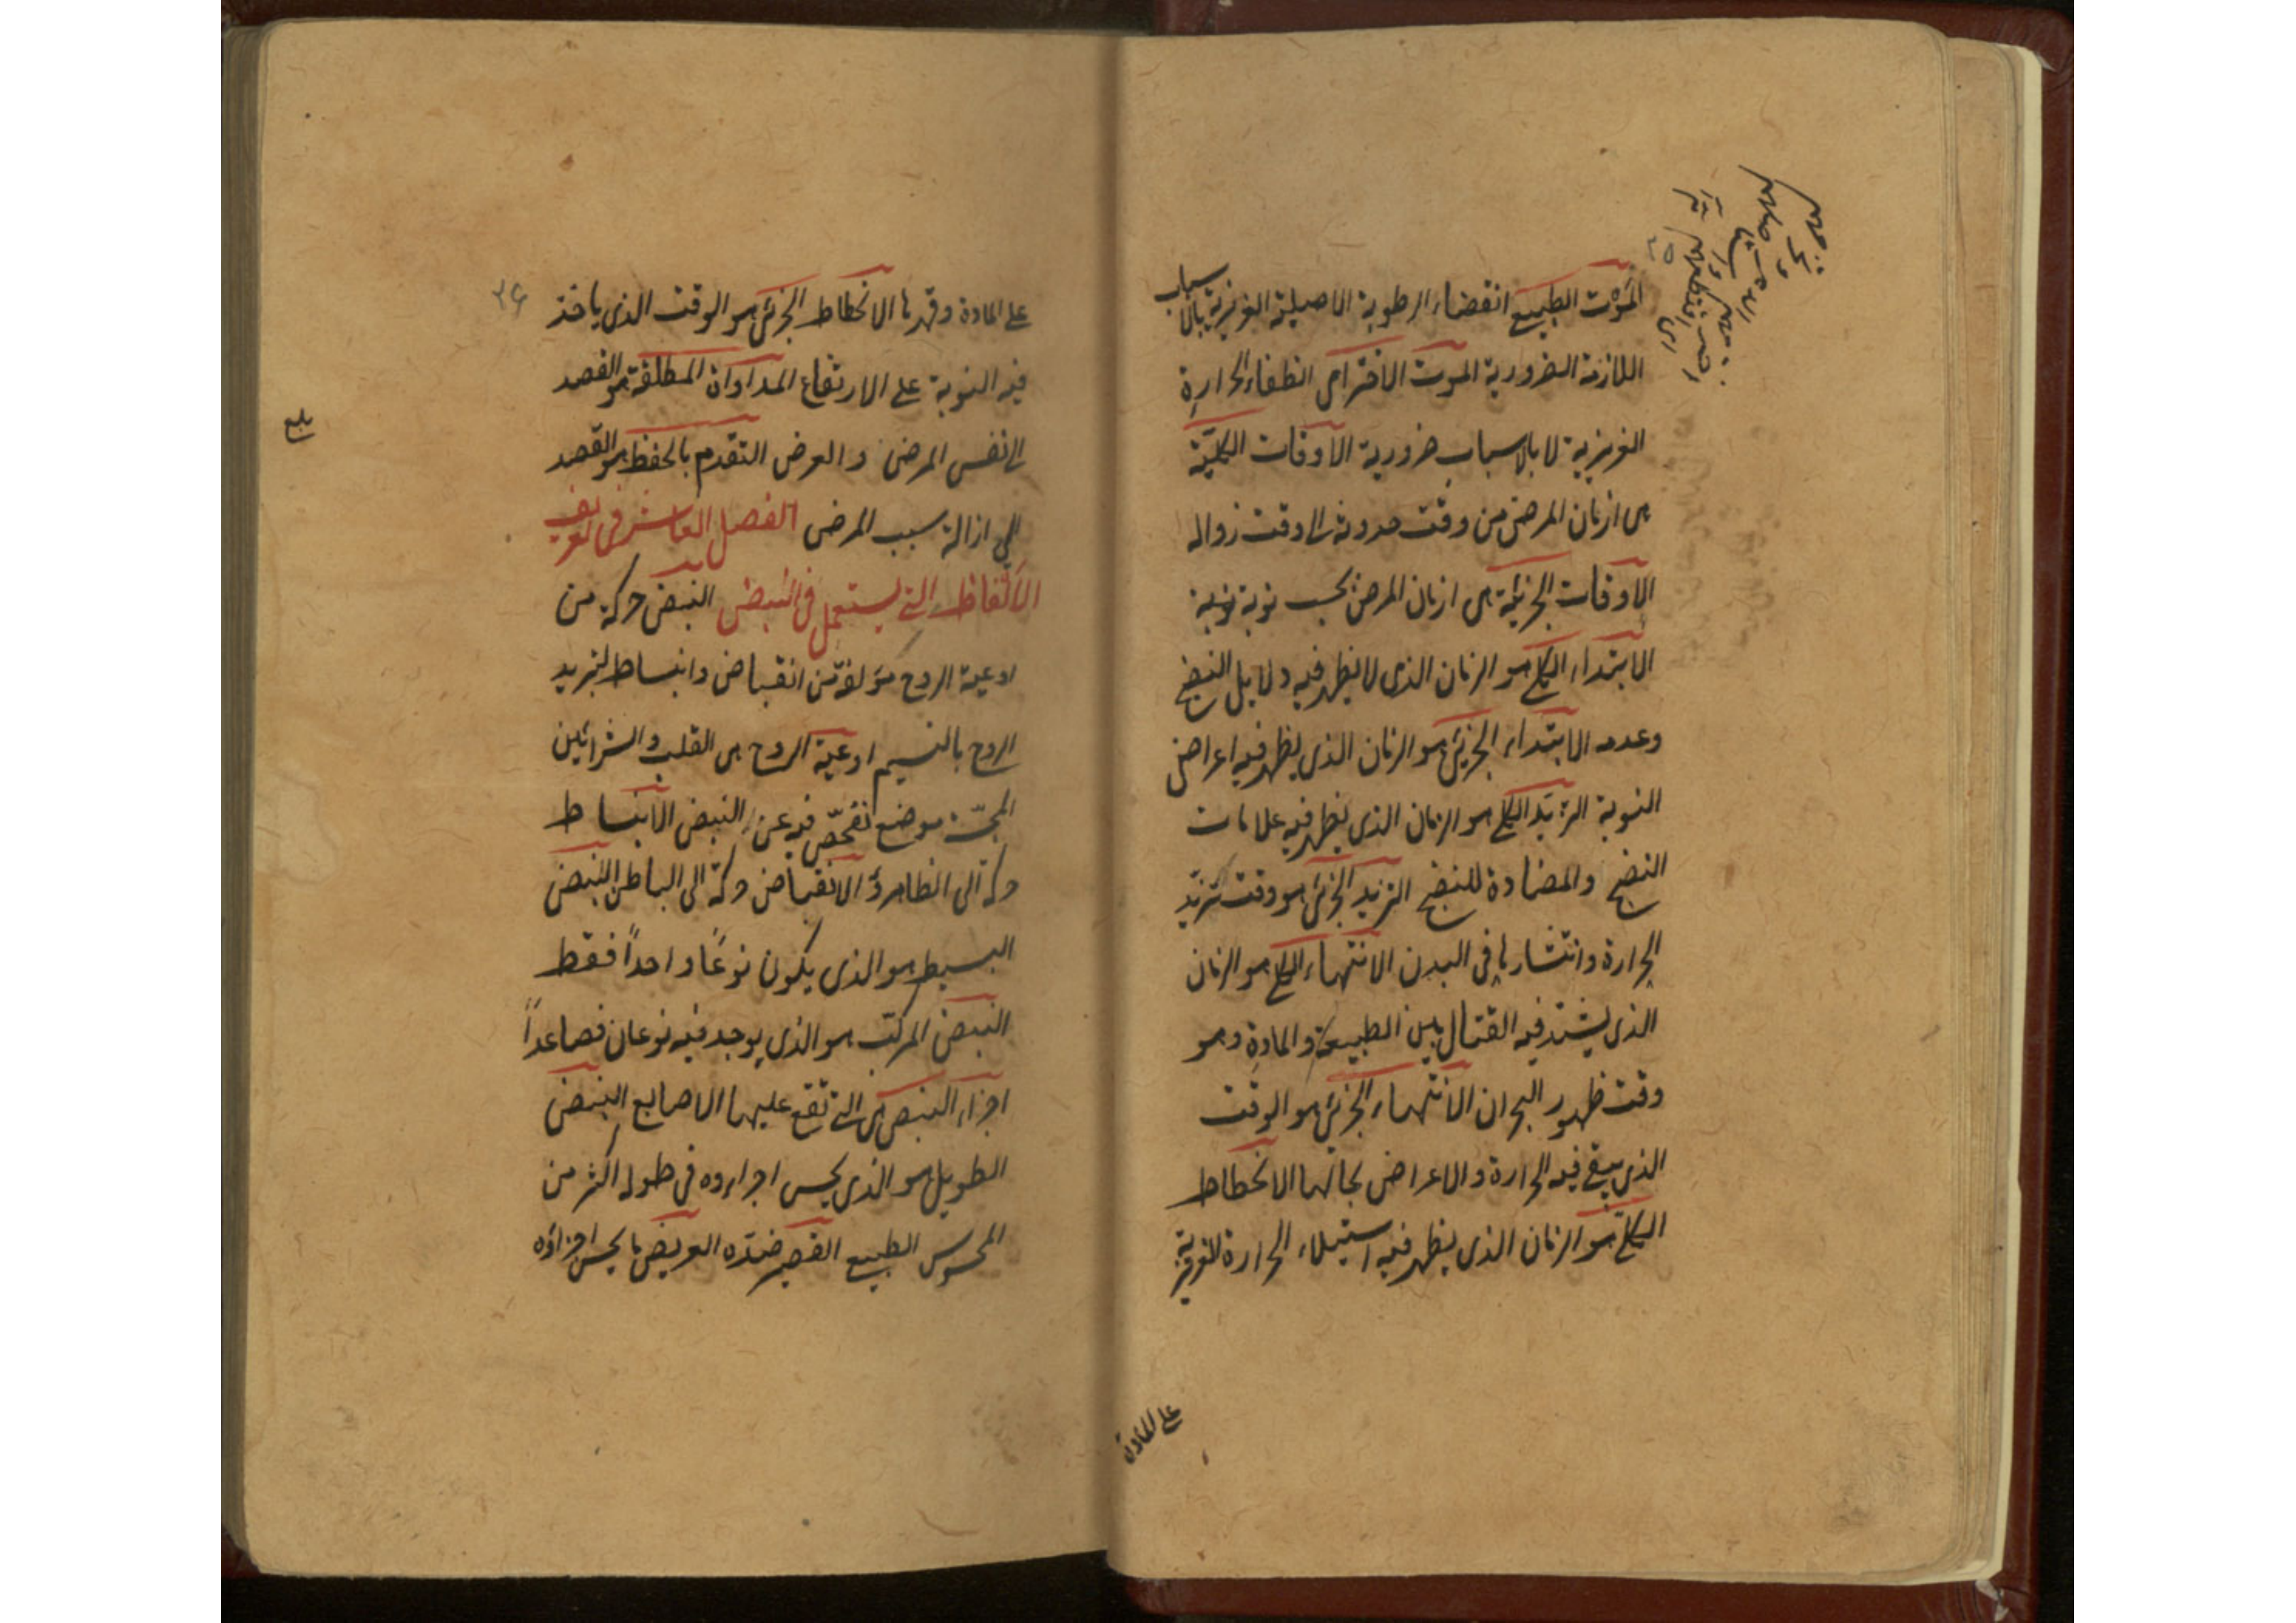 ٢٥
الموت الطبيعي انقضاء الرطوبة الاصلية الغريزية بالاسباب
اللازمة الضرورية الموت الاخترامى انطفاء الحرارة
الغريزية لا بالاسباب ضرورية الاوقات الكلية
هى ازمان المرض من وقت حدوثه الى وقت زواله
الاوقات الجزئية هى ازمان المرض بحسب نوبة نوبة
الابتداء الكلى هو الزمان الذى لا يظهر فيه دلايل النضج
وعدمه الابتداء الجزئى هو الزمان الذى يظهر فيه اعراض
النوبة التزيد الكلى هو الزمان الذى يظهر فيه علامات
النضج والمضادة للنضج التزيد الجزئى هو وقت تزيد
الحرارة وانتشارها فى البدن الانتهاء الكلى هو الزمان
الذى يشتد فيه القتال بين الطبيعة والمادة وهو
وقت ظهور البحران الانتهاء الجزئى هو الوقت
الذى يبقى فيه الحرارة والاعراض بحالها الانحطاط
الكلى هو الزمان الذى يظهر فيه استيلاء الحرارة الغريزية
على المادة
٢٦
على المادة وقهرها الانحطاط الجزئى هو الوقت الذى ياخذ
فيه النوبة على الارتفاع المداواة المطلقة هو القصد
الى نفس المرض والعرض التقدم بالحفظ هو القصد
الى ازالة سبب المرض الفصل العاشر فى تعريف
الالفاظ التى يستعمل فى النبض النبض حركة من
اوعية الروح مؤلفة من انقباض وانبساط لتبريد
الروح بالنسيم اوعية الروح هى القلب والشرائين
المجسّة موضع تفحّص فيه عن النبض الانبساط
حركة الى الظاهر والانقباض حركة الى الباطن النبض
البسيط هو الذى يكون نوعًا واحداً فقط
النبض المركب هو الذى يوجد فيه نوعان فصاعداً
اجزاء النبض هى التى تقع عليها الاصابع النبض
الطويل هو الذى يحس اجزاءوه فى طوله اكثر من
المحسوس الطبيعى القصير ضدّه العريض ما يحس اجزاؤه
بلغ